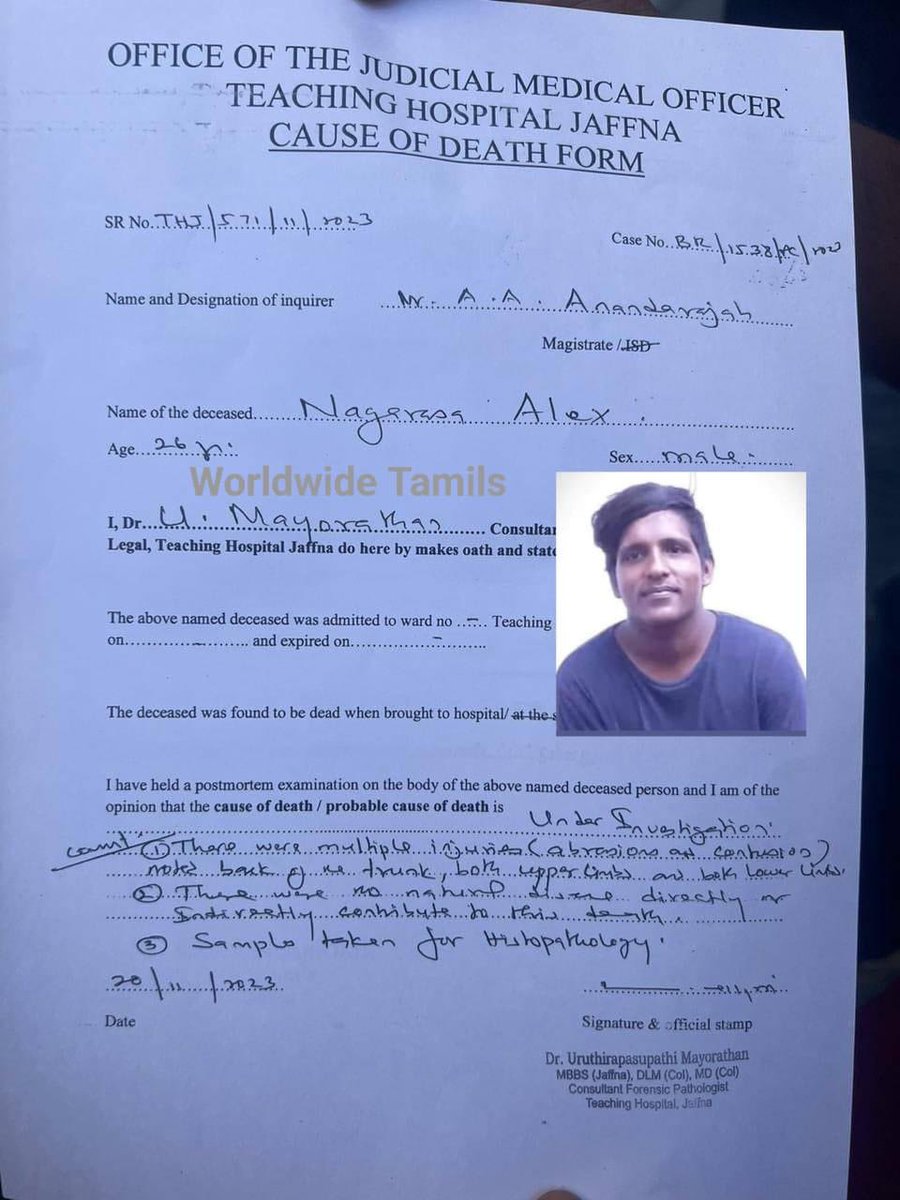 OFFICE OF THE JUDICIAL MEDICAL OFFICER
TEACHING HOSPITAL JAFFNA
CAUSE OF DEATH FORM
SR No. THJ/571/11/2023
Case No. BR/1538/PC/
Name and Designation of inquirer Mr. A. A. Anandarajah
Magistrate / JSD
Name of the deceased Nagarasa Alex.
Age 26 yr: Sex male
Worldwide Tamils
I, Dr. U. Mayorathan Consulta
Legal, Teaching Hospital Jaffna do here by makes oath and state
The above named deceased was admitted to ward no - Teaching
on - and expired on -
The deceased was found to be dead when brought to hospital/ at the s
I have held a postmortem examination on the body of the above named deceased person and I am of the
opinion that the cause of death / probable cause of death is
Under Investigation.
(1) There were multiple injuries (abrasions and contusions)
noted back of the trunk, both upper limbs and both lower limbs.
(2) There were no natural disease directly or
Indirectly contribute to this death.
(3) Sample taken for Histopathology.
20/11/2023
Date
Signature & official stamp
Dr. Uruthirapasupathi Mayorathan
MBBS (Jaffna), DLM (Col), MD (Col)
Consultant Forensic Pathologist
Teaching Hospital, Jaffna